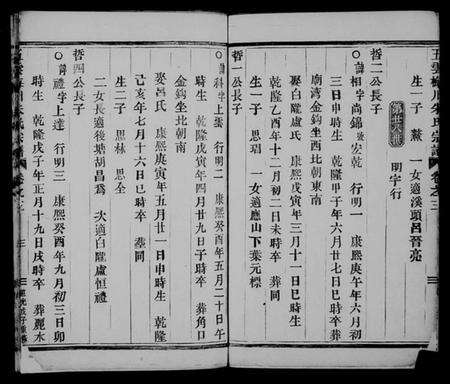 氏宗譜 卷之三
生一子 薰 一女適溪頭呂晉亮
第廿八世 明字行
哲二公長子
○諱相字尚錦 安乾 行明一 康熙庚午年六月初
三日申時生 乾隆甲子年六月廿七日巳時卒葬
廟灣金鈎坐西北朝東南
娶白隴盧氏 康熙戊寅年三月十一日巳時生
乾隆乙酉年十月初二日未時卒 葬同
生一子 思 一女適應山下葉元標
哲一公長子
○諱科字上蜚 行明二 康熙癸酉年五月二十日午
時生 乾隆戊寅年四月九日子時卒 葬角口
金鈎坐北朝南
娶呂氏 康熙庚寅年五月廿一日申時生 乾隆
己亥年七月十六日巳時卒 葬同
生二子 思林 思全
二女長適後塘胡昌爲 次適白隴盧恒禮
哲四公長子
○諱禮字上達 行明三 康熙癸酉年九月初三日卯
時生 乾隆戊子年正月十九日戌時卒 葬麗水